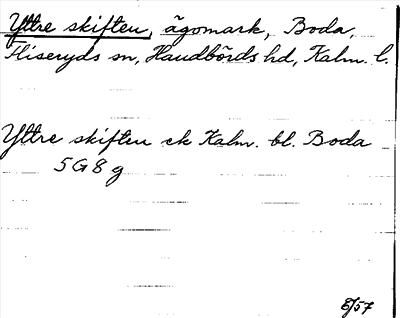 Yttre skiften, ägomark, Boda,
Fliseryds sn, Handbörds hd, Kalm. l.
Yttre skiften ek Kalm. bl. Boda
5G8g
8/57